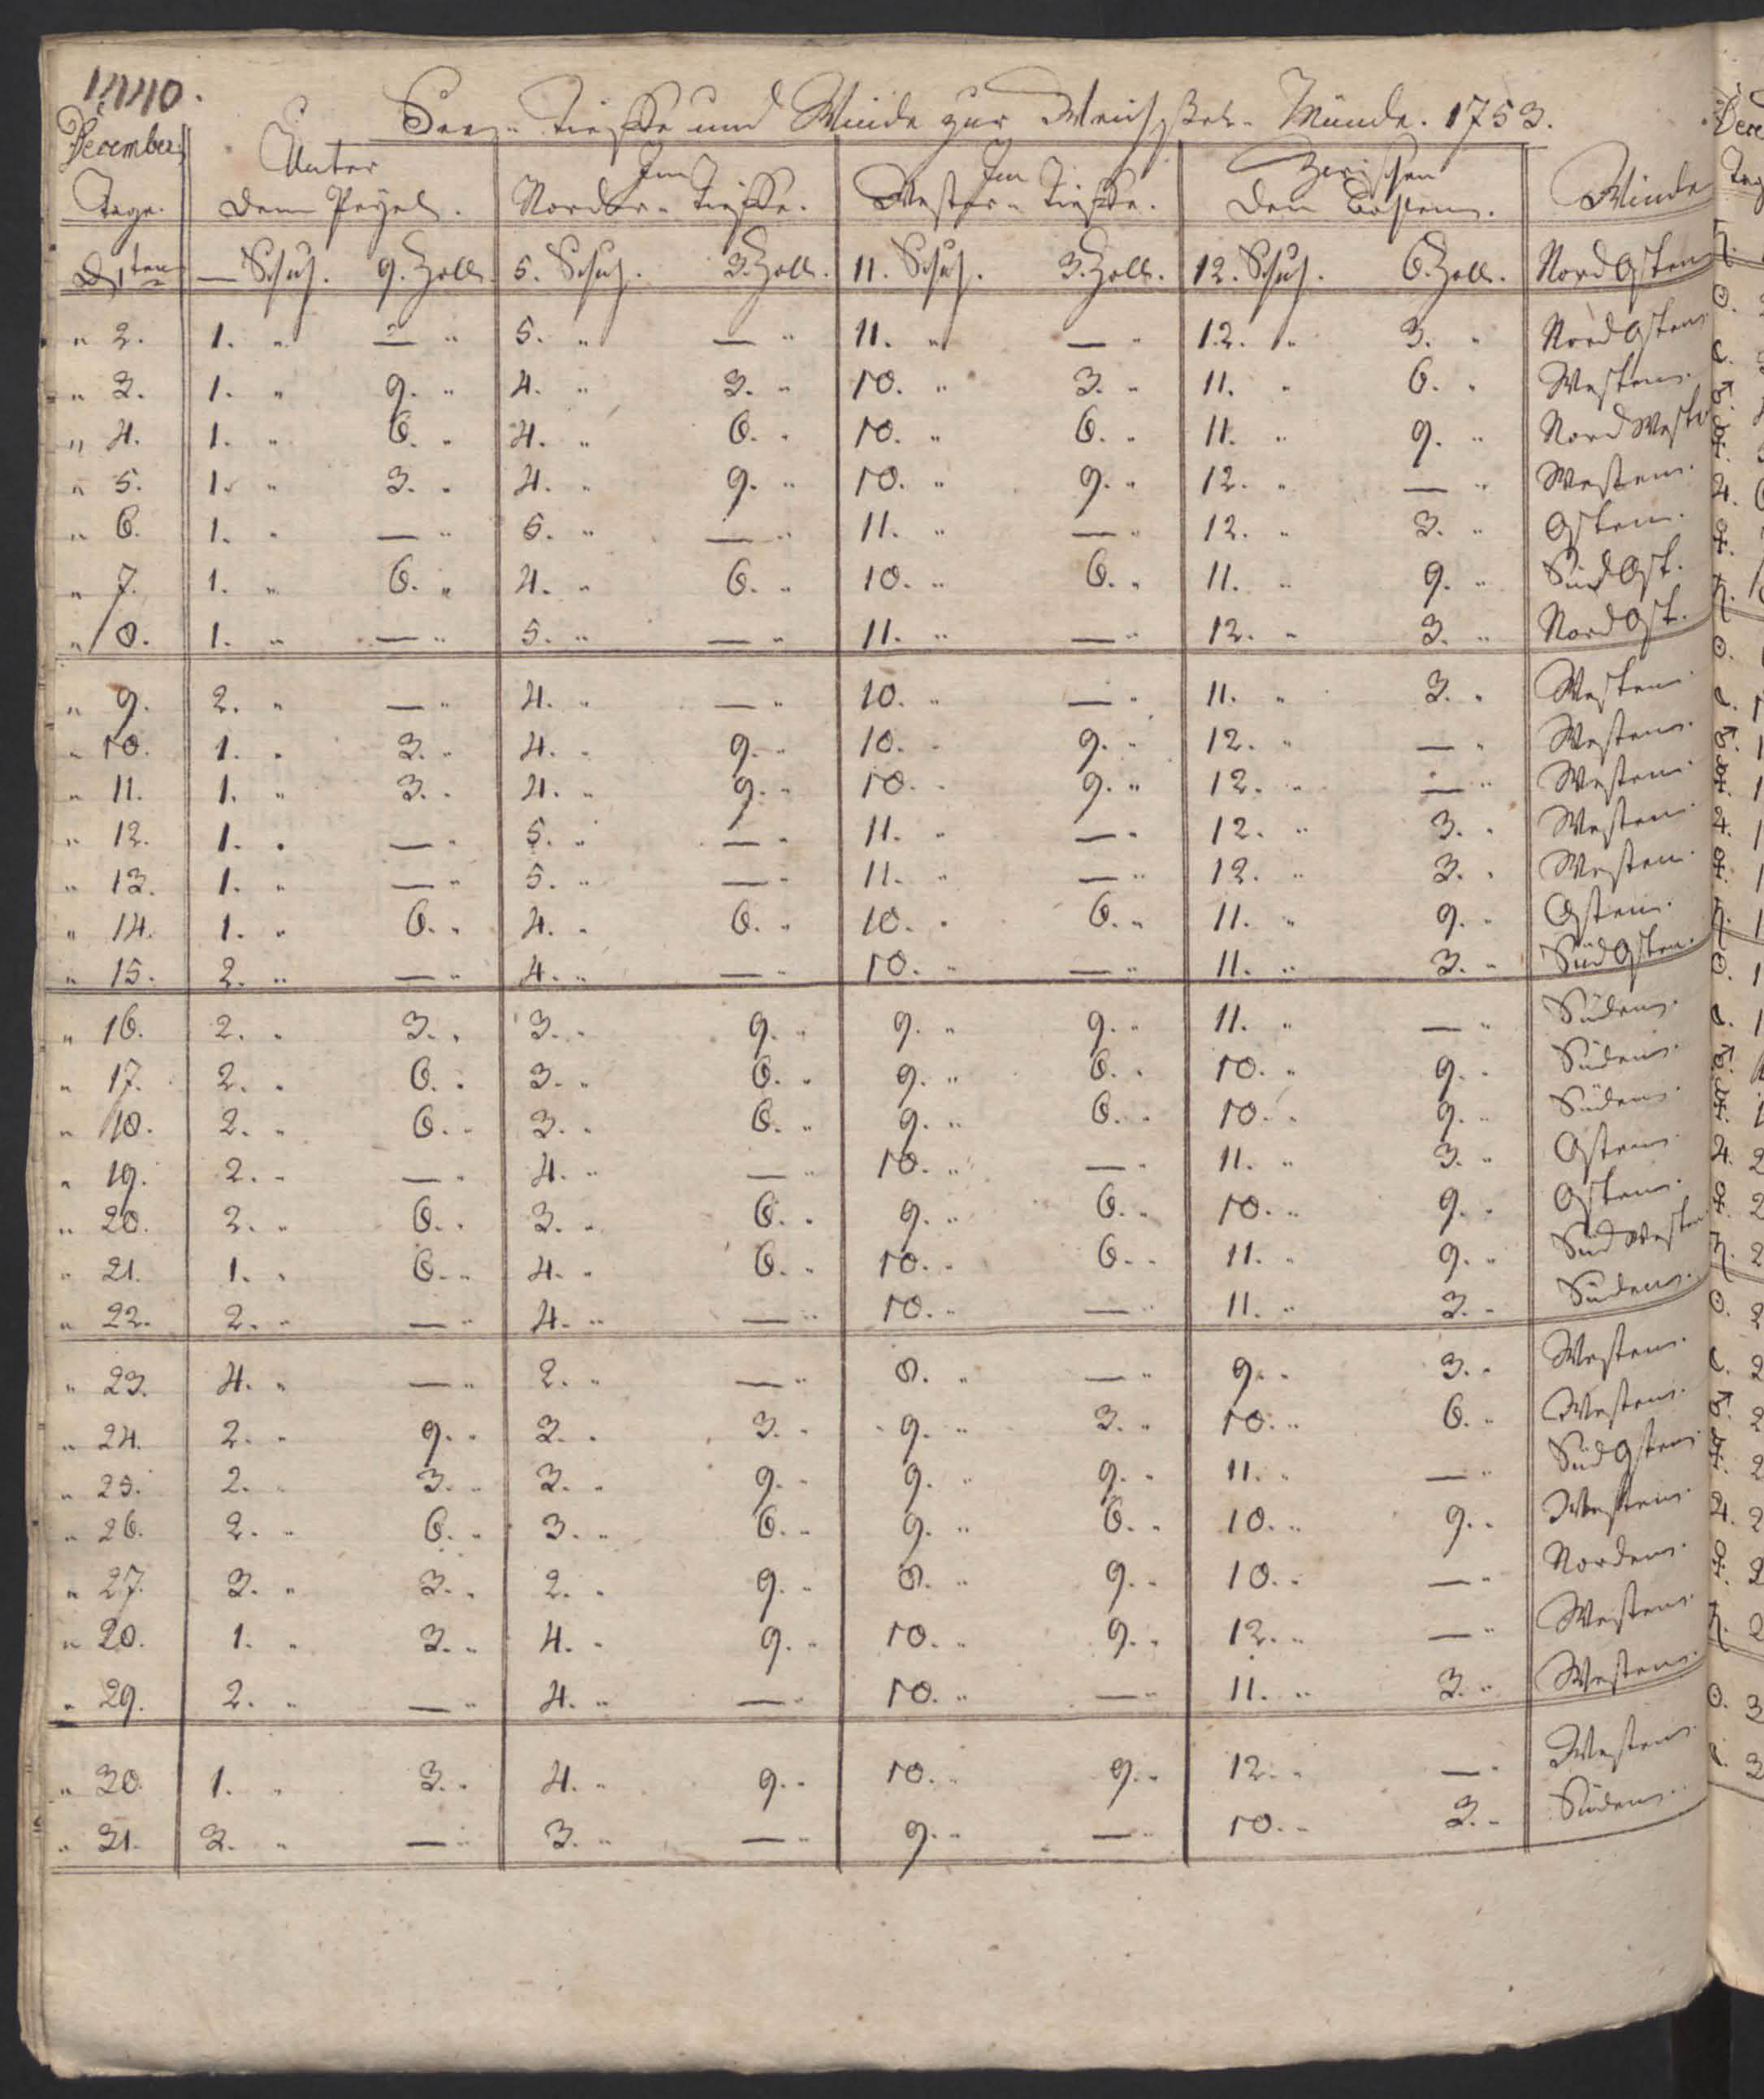 See- Tieffe und Winde zur Weichßel-Münde. 1753.
December Unter Im Im Zwischen
Tage. dem Peyel. Norder-Tieffe. Wester-Tieffe. den Winde
D 1ten — Schuh. 9. Zoll. 5. Schuh. 3. Zoll. 11. Schuh. 3. Zoll. 12. Schuh. 6. Zoll. NordOsten
" 2. 1. " — " 5. " — " 11. " — " 12. " 3. " NordOsten
" 3. 1. " 9. " 4. " 3. " 10. " 3. " 11. " 6. " Westen.
" 4. 1. " 6. " 4. " 6. " 10. " 6. " 11. " 9. " NordWest
" 5. 1. " 3. " 4. " 9. " 10. " 9. " 12. " — " Westen.
" 6. 1. " — " 5. " — " 11. " — " 12. " 3. " Osten.
" 7. 1. " 6. " 4. " 6. " 10. " 6. " 11. " 9. " SüdOst.
" 8. 1. " — " 5. " — " 11. " — " 12. " 3. " NordOst.
" 9. 2. " — " 4. " — " 10. " — " 11. " 3. " Westen
" 10. 1. " 3. " 4. " 9. " 10. " 9. " 12. " — " Westen.
" 11. 1. " 3. " 4. " 9. " 10. " 9. " 12. " — " Westen.
" 12. 1. " — " 5. " — " 11. " — " 12. " 3. " Westen
" 13. 1. " — " 5. " — " 11. " — " 12. " 3. " Westen.
" 14. 1. " 6. " 4. " 6. " 10. " 6. " 11. " 9. " Osten.
" 15. 2. " — " 4. " — " 10. " — " 11. " 3. " SüdOsten.
" 16. 2. " 3. " 3. " 9. " 9. " 9. " 11. " — " Süden.
" 17. 2. " 6. " 3. " 6. " 9. " 6. " 10. " 9. " Süden.
" 18. 2. " 6. " 3. " 6. " 9. " 6. " 10. " 9. " Süden.
" 19. 2. " — " 4. " — " 10. " — " 11. " 3. " Osten.
" 20. 2. " 6. " 3. " 6. " 9. " 6. " 10. " 9. " Osten.
" 21. 1. " 6. " 4. " 6. " 10. " 6. " 11. " 9. " SüdWesten
" 22. 2. " — " 4. " — " 10. " — " 11. " 3. " Süden.
" 23. 4. " — " 2. " — " 8. " — " 9. " 3. " Westen.
" 24. 2. " 9. " 3. " 3. " 9. " 3. " 10. " 6. " Westen.
" 25. 2. " 3. " 3. " 9. " 9. " 9. " 11. " — " SüdOsten
" 26. 2. " 6. " 3. " 6. " 9. " 6. " 10. " 9. " Westen.
" 27. 3. " 3. " 2. " 9. " 8. " 9. " 10. " — " Norden.
" 28. 1. " 3. " 4. " 9. " 10. " 9. " 12. " — " Westen.
" 29. 2. " — " 4. " — " 10. " — " 11. " 3. " Westen.
" 30. 1. " 3. " 4. " 9. " 10. " 9. " 12. " — " Westen.
" 31. 3. " — " 3. " — " 9. " — " 10. " 3. " Süden.